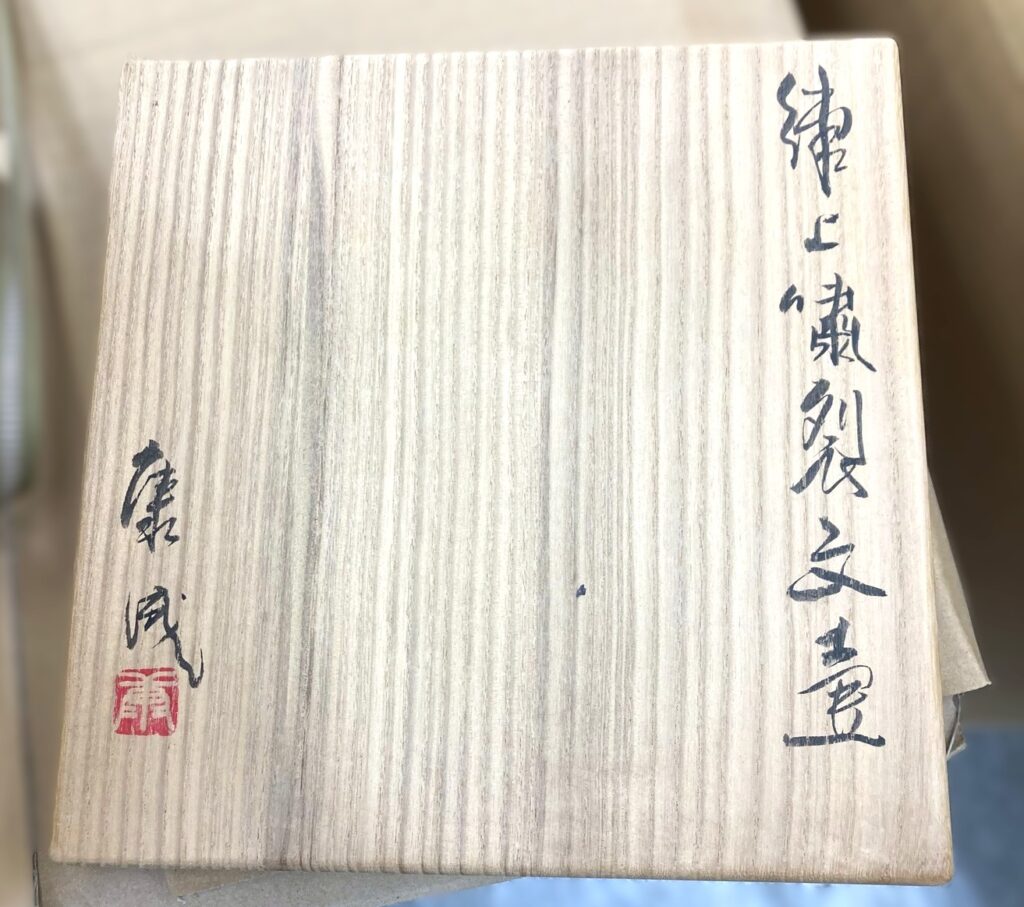 練上嘯裂文壺
康成